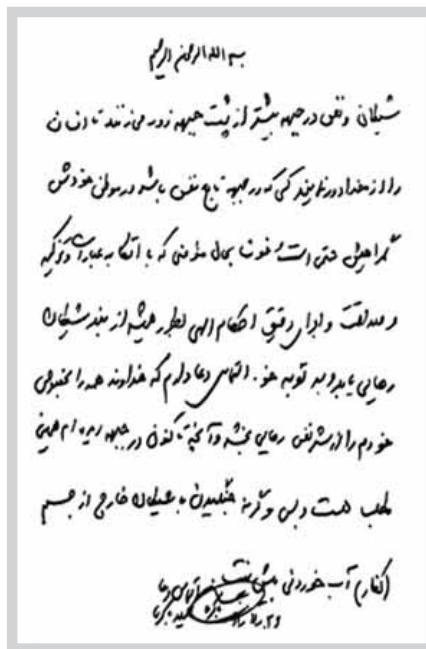 بسم الله الرحمن الرحیم
شیطان و نفس در جبهه بیشتر از پشت جبهه زور می‌زنند تا انسان
را از خدا دور نمایند کسی که در جبهه تابع نفس باشد در موطن خودش
گمراهیش حتمی است و خوشا بحال مؤمنی که با اتکا به عبادات و تزکیه
و صداقت و اجرای دقیق احکام الهی بطور همیشه از بند شیطان
رهایی یابد و به توبه خو. التماس دعا دارم که خداوند همه را بخصوص
خودم را از شر نفس رهایی بخشد و آنچه تا کنون در جبهه دیده‌ام همین
مطلب است و بس و گرنه جنگیدن با شیطان خارج از جسم
(کفار) آب خوردنی بیش نیست
التماس دعا